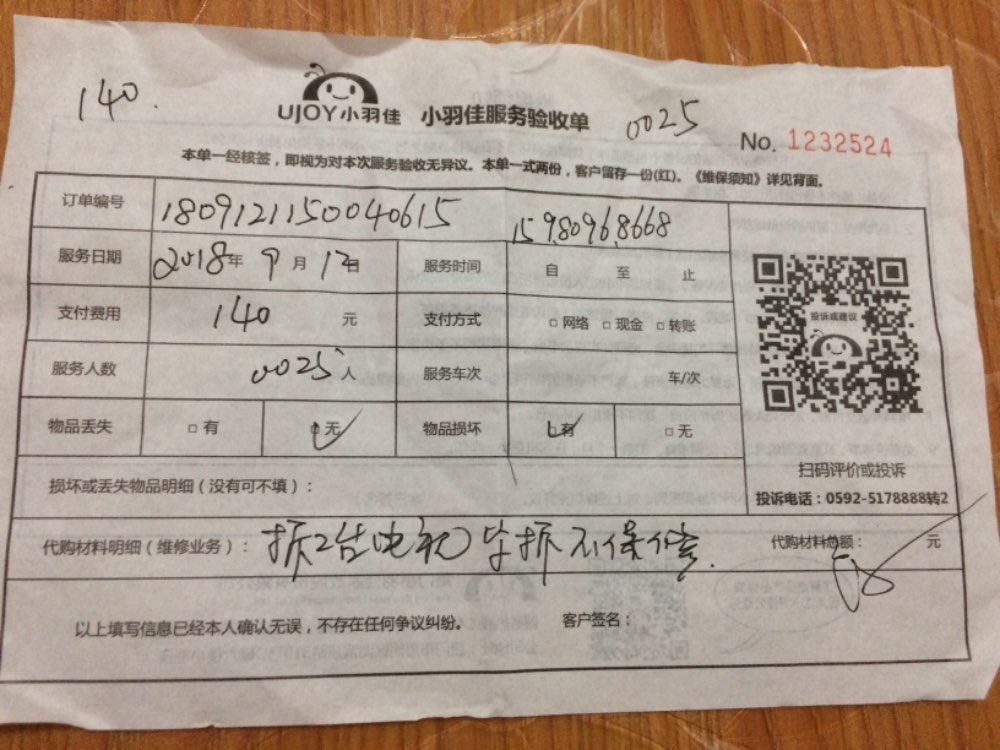 140.
UJOY小羽佳 小羽佳服务验收单 0025
No. 1232524
本单一经核签，即视为对本次服务验收无异议。本单一式两份，客户留存一份(红)。《维保须知》详见背面。
订单编号 1809121150040615 15980968668
服务日期 2018年 9月12日 服务时间 自 至 止
支付费用 140 元 支付方式 □网络 □现金 □转账
服务人数 0025 人 服务车次 车/次
物品丢失 □有 □无 物品损坏 □有 □无
投诉或建议
扫码评价或投诉
投诉电话：0592-5178888转2
损坏或丢失物品明细（没有可不填）：
代购材料明细（维修业务）： 拆2台电视 只拆不保修. 代购材料总额： 元
以上填写信息已经本人确认无误，不存在任何争议纠纷。 客户签名：